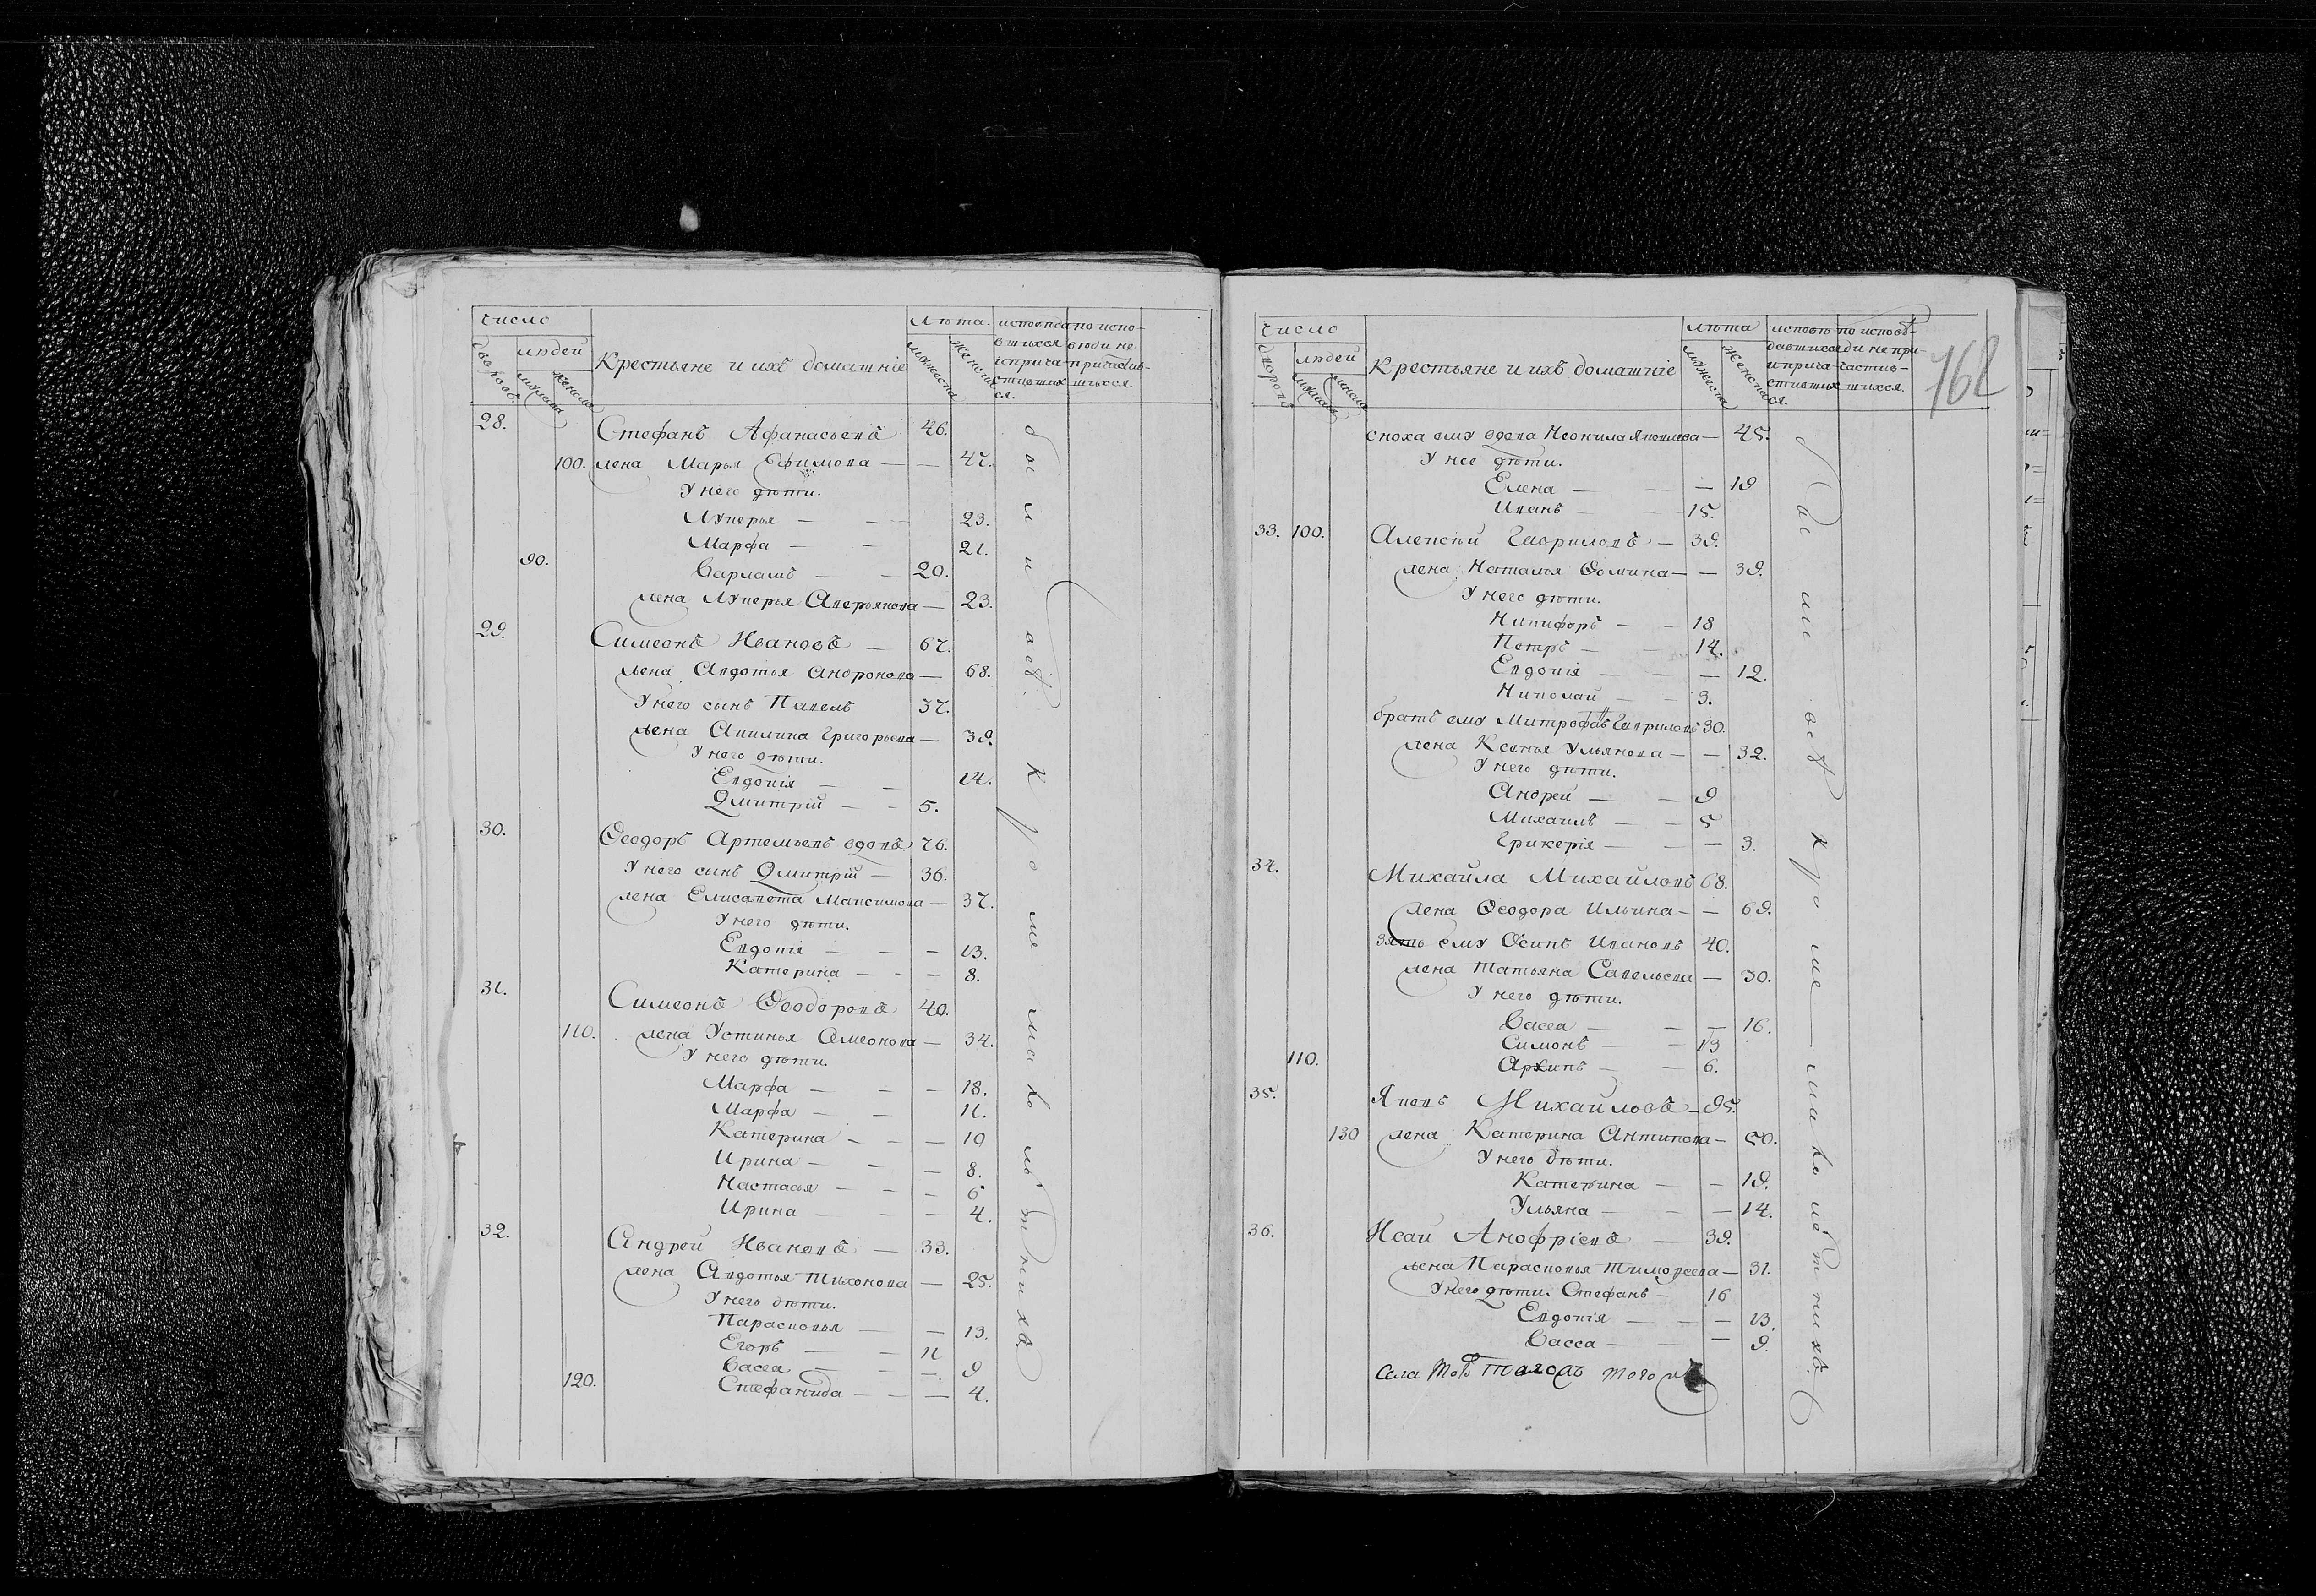 число
дворовъ.
людей
мужеска
женска
Крестьяне и ихъ домашніе
лѣта
мужеска
женска
исповѣда
вшихся
и прича-
стившихъ
ся.
по испо-
вѣди не
причастив-
шихся
28. Стефанъ Афанасьевъ 46.
100. жена Марья Ефимова — — 47.
У него дѣти.
Лукерья — — 23.
Марфа — — 21.
90. Варламъ — — 20.
жена Лукерья Аверьянова — 23.
29. Симеонъ Ивановъ — 67.
жена Авдотья Андронова — 68.
У него сынъ Павелъ 37.
жена Акилина Григорьева — 39.
У него дѣти.
Евдокія — — 14.
Дмитрій — — 5.
30. Ѳеодоръ Артемьевъ вдовъ 76.
У него сынъ Дмитрій — 36.
жена Елисавета Максимова — 37.
У него дѣти.
Евдокія — — — 13.
Катерина — — — 8.
31. Симеонъ Ѳеодоровъ 40.
110. жена Устинья Симеонова — 34.
У него дѣти.
Марфа — — — 18.
Марфа — — 11.
Катерина — — — 10
Ирина — — — 8.
Настасья — — — 6
Ирина — — — 4.
32. Андрей Ивановъ — 33.
жена Авдотья Тихонова — 25.
У него дѣти.
Парасковья — — 13.
Егоръ — — 11
Васса — — — 9
120. Стефанида — — — 4.
были всѣ кромѣ малолѣтнихъ
162
число
дворовъ
людей
мужеска
женска
Крестьяне и ихъ домашніе
лѣта
мужеска
женска
исповѣ
давшихся
и прича-
стившихъ
ся.
по исповѣ-
ди не при-
частив-
шихся.
сноха ему вдова Неонила Яковлева — 45.
У нее дѣти.
Елена — — — 19
Иванъ — — 15.
33. 100. Алексѣй Гавриловъ — 39.
жена Наталья Ѳомина — — 39.
У него дѣти.
Никифоръ — — 18
Петръ — — 14.
Евдокія — — — 12.
Николай — — 3.
братъ ему Митрофанъ Гавриловъ 30.
жена Ксенья Ульянова — — 32.
У него дѣти.
Андрей — — 9
Михаилъ — — 5
Грикерія — — — 3.
34. Михайла Михайловъ 68.
жена Ѳеодора Ильина — — 69.
зять ему Осипъ Ивановъ 40.
жена Татьяна Савельева — 30.
У него дѣти.
Васса — — — 16.
Симонъ — — 13
110. Архипъ — — 6.
35. Яковъ Михайловъ — 95.
130 жена Катерина Антипова — 50.
У него дѣти.
Катерина — — 19.
Ульяна — — — 14.
36. Исаи Анофріевъ — 39.
жена Парасковья Тимоѳеева — 31.
У него дѣти. Стефанъ — 16
Евдокія — — — 13.
Васса — — — 9.
были всѣ кромѣ — малолѣтнихъ